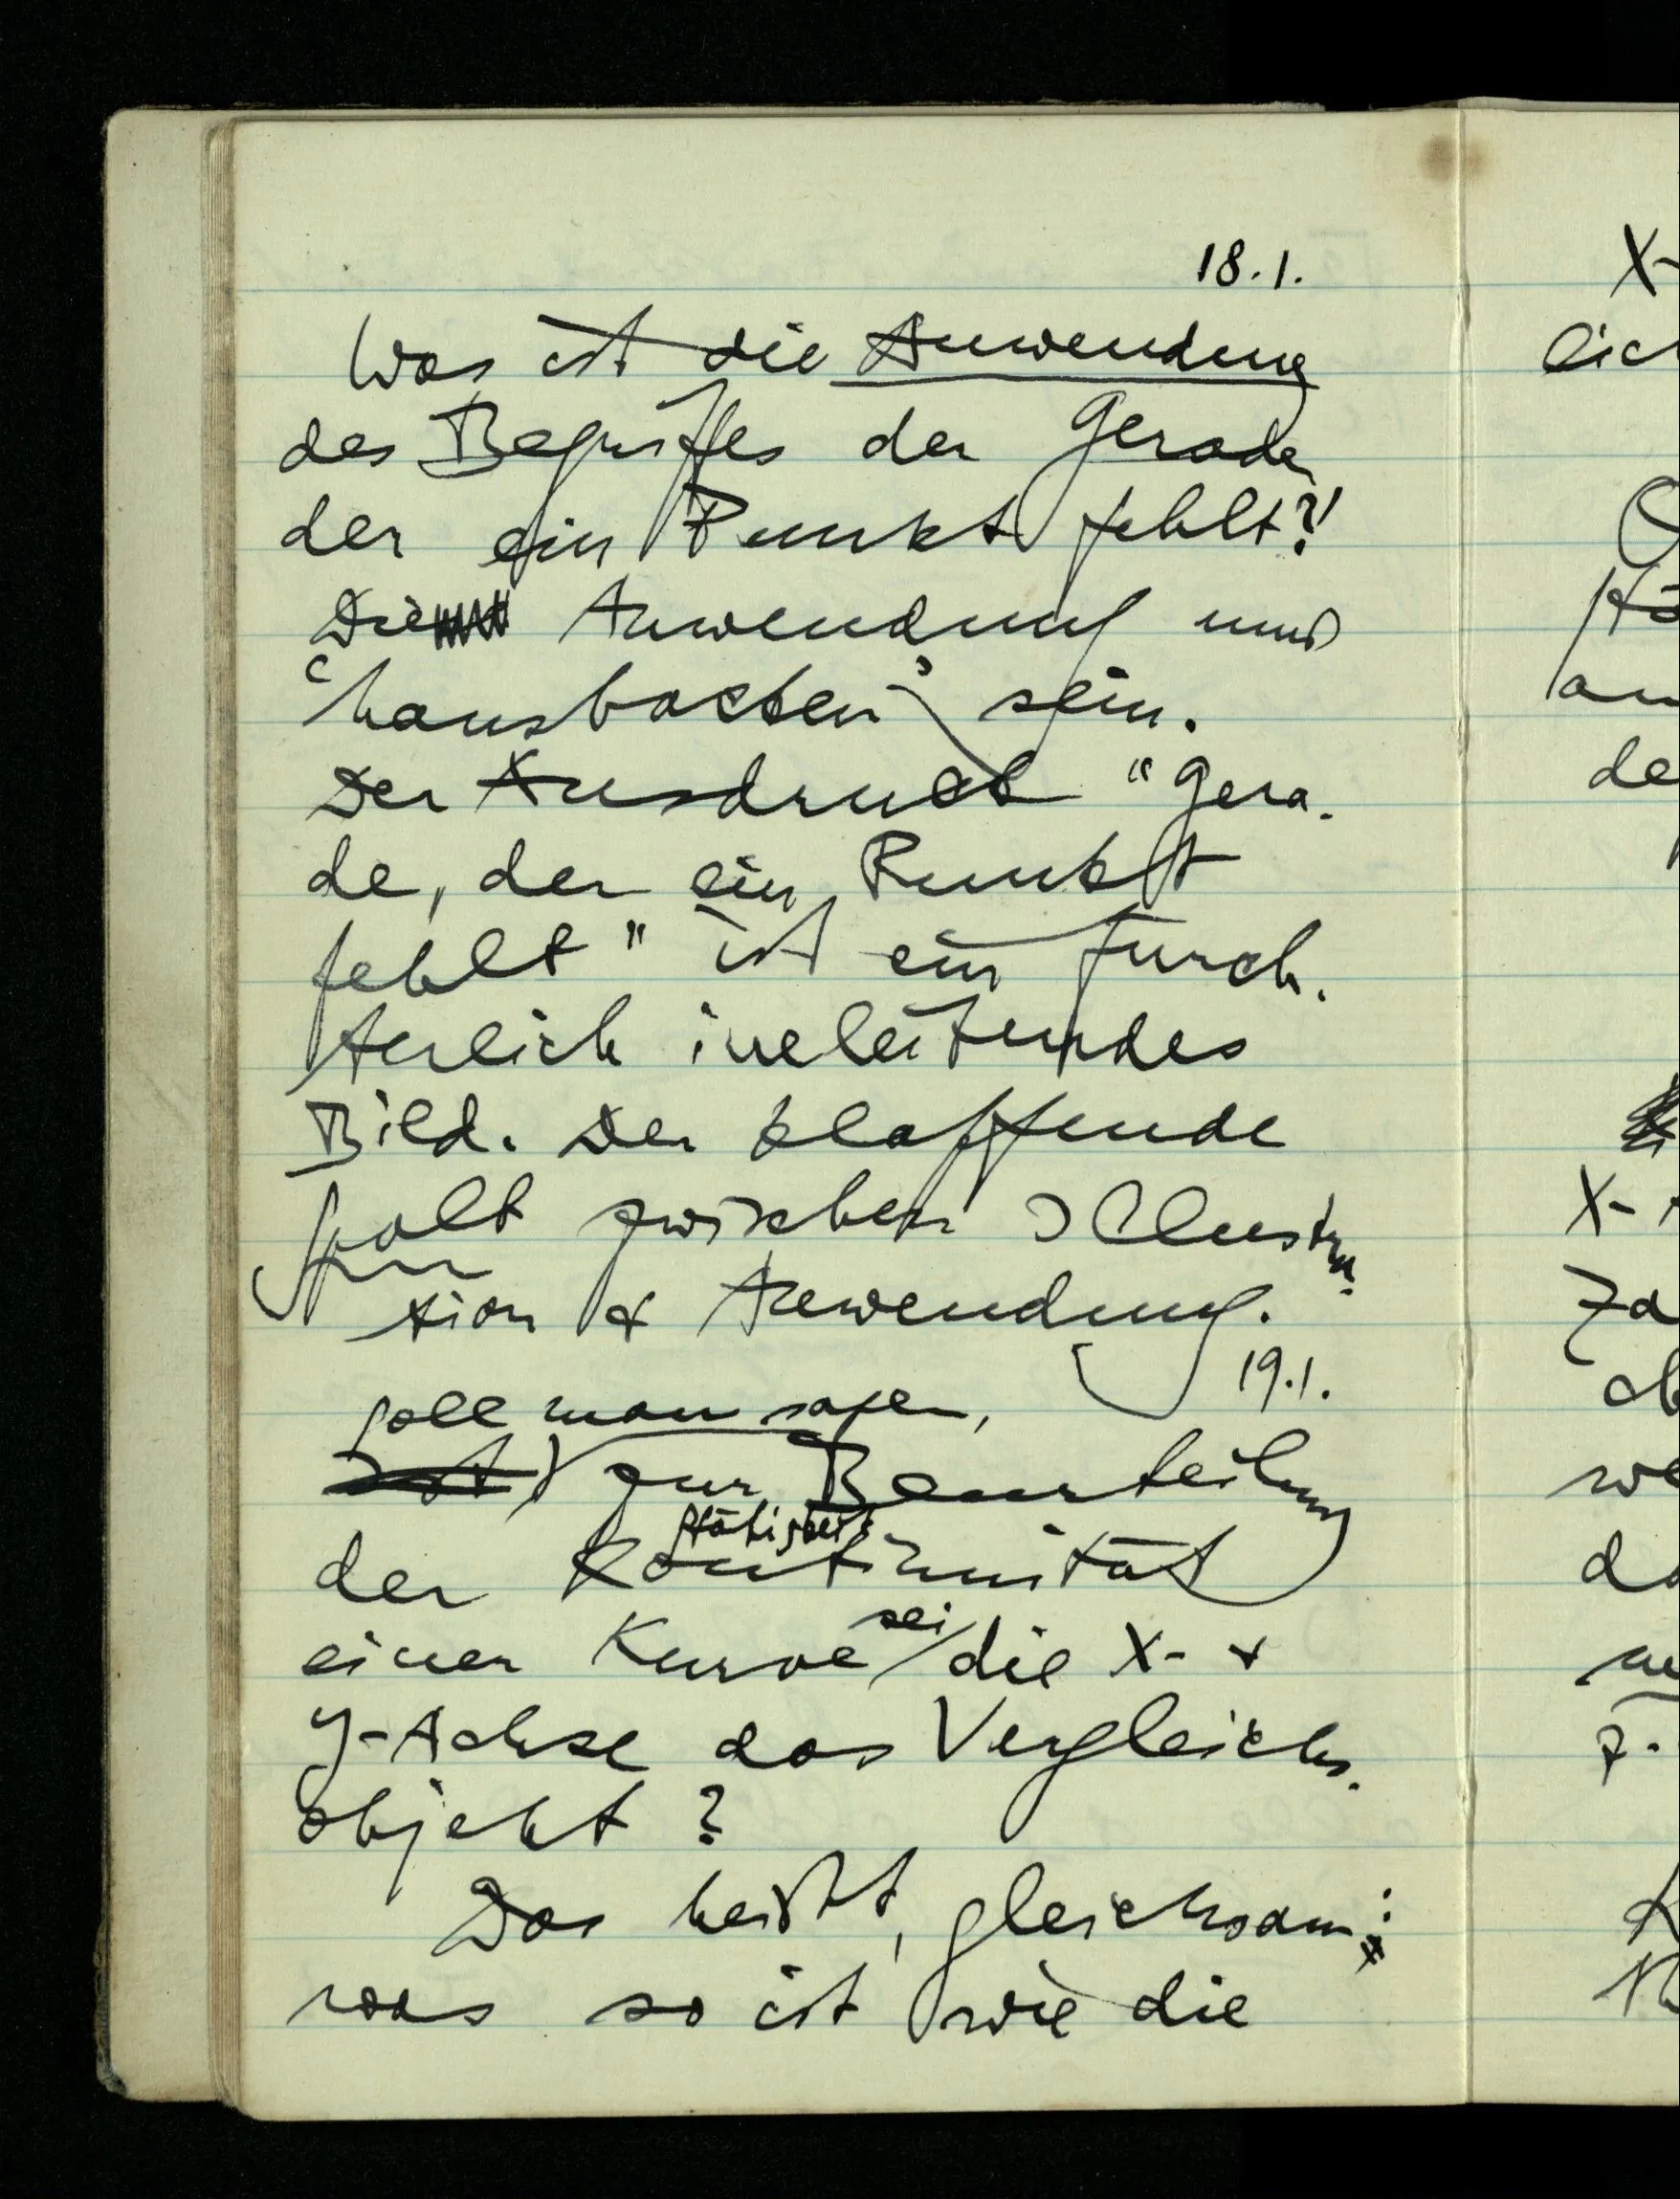 18.1.
Was ist die Anwendung
des Begriffes der Geraden
der ein Punkt fehlt?!
Die Anwendung muß
'hausbacken' sein.
Der Ausdruck "Gera-
de, der ein Punkt
fehlt" ist ein furch-
terlich irreleitendes
Bild. Der klaffende
Spalt zwischen Illustra-
tion & Anwendung.
19.1.
soll man sagen,
Ist zur Beurteilung
Stätigkeit
der Kontinuität
sei
einer Kurve die X- &
Y-Achse das Vergleichs-
objekt?
Das heißt, gleichsam:
was so ist wie die
X-
lich
de
X-
Za
ob
we
da